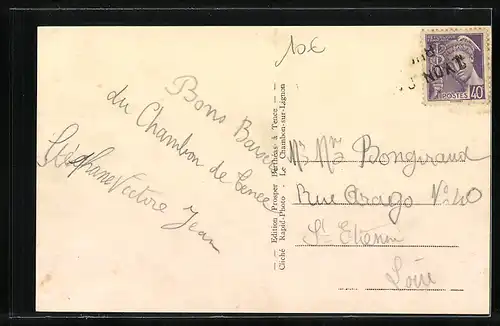 10€
POSTES 40
Bons Baisers
du Chambon de Tence
Stéphane Victore Jean
Edition Prosper Berthéas à Tence
Cliché Rapid-Photo - Le Chambon-sur-Lignon
Mr Mme Bongiraud
Rue Arago No 40
St Etienne
Loire